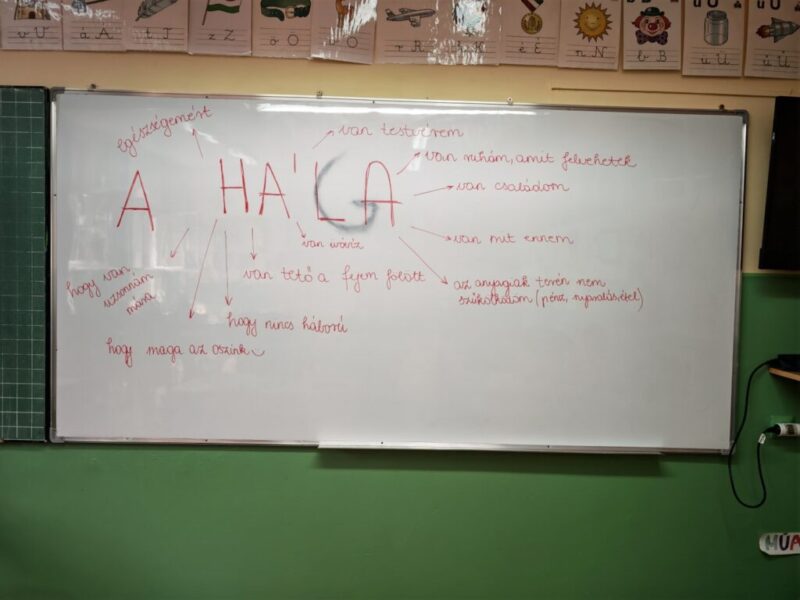 á Á
t T
z Z
ö Ö
r R
é É
n N
b B
Egészségemért
van testvérem
van ruhám, amit felvehetek
van családom
A HÁLA
van mit ennem
van ivóvíz
hogy van
uzsonnám
mára
van tető a fejem fölött
az anyagiak terén nem
szűkölködöm (pénz, nyaralás, étel)
hogy nincs háború
hogy maga az